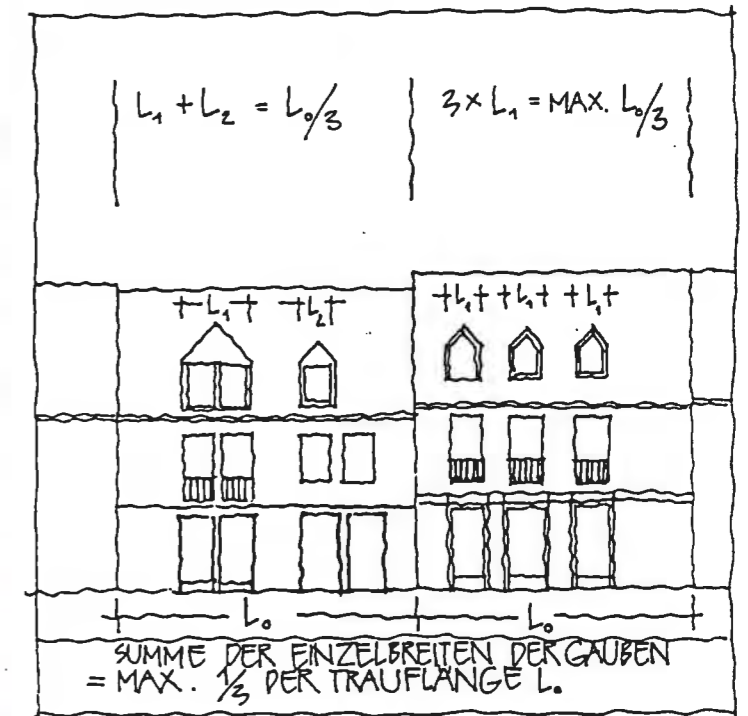 L₁ + L₂ = L₀/3
3 × L₁ = MAX. L₀/3
L₁ L₂
L₁ L₁ L₁
L₀ L₀
SUMME DER EINZELBREITEN DER GAUBEN
= MAX. 1/3 DER TRAUFLÄNGE L₀